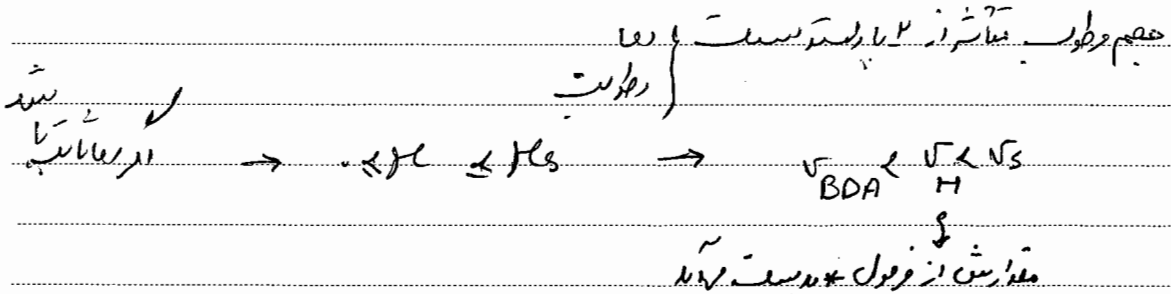 حجم مرطوب متاثر از ۲ پارامتر است { دما
رطوبت
اگر دما ثابت باشد → 0 ≤ H ≤ Hs → V_BDA < V_H < V_S
مقدارش از فرمول * بدست می آید